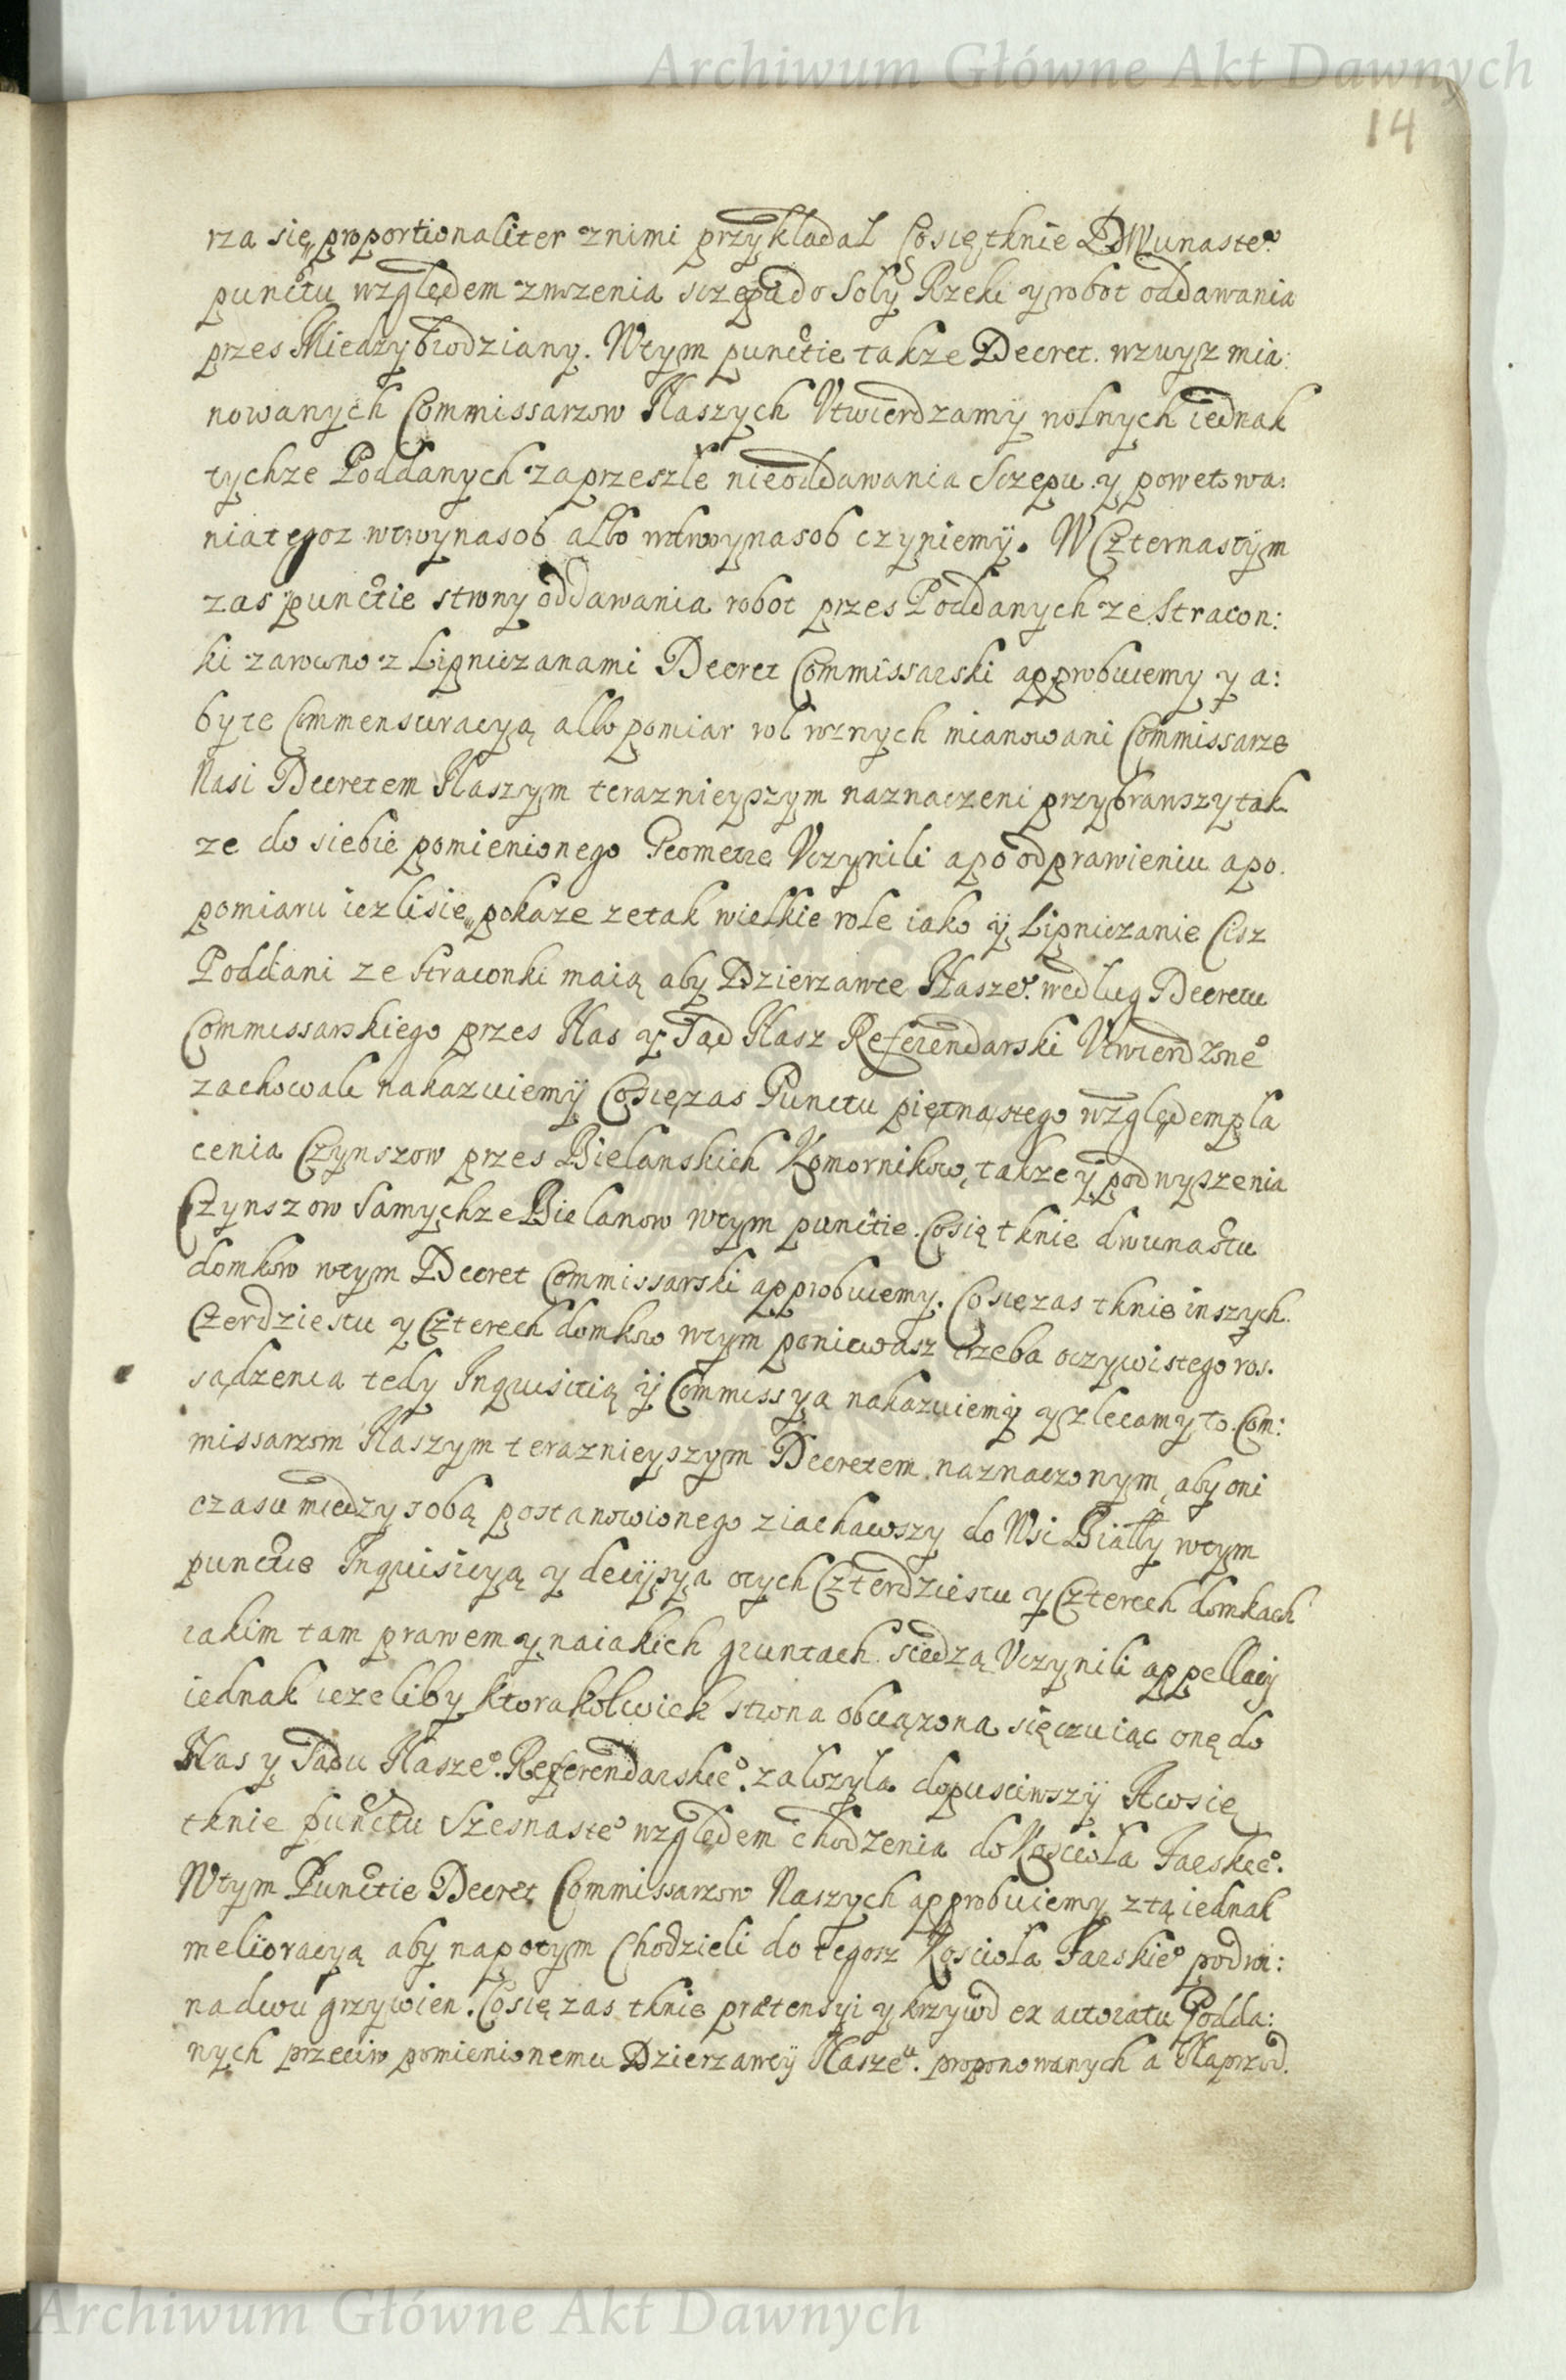 Archiwum Główne Akt Dawnych
14
rza się proportionaliter z nimi przykladal Co się tknie DWunaste°
punctu względem zwozenia sczepu do Soły Rzeki y robot oddawania
przes Miedzybrodziany. W tym punctie takze Decret wzwysz mia:
nowanych Commissarzow Naszych Utwierdzamÿ wolnych iednak
tychze Poddanych za przeszłe nieoddawania Sczepu y powetowa:
nia tegoz wtwynasob albo wdwoynasob czyniemÿ. W Czternastÿm
zas punctie strony oddawania robot przes Poddanych ze Stracon:
ki zarowno z Lipniczanami Decret Commissarski approbuiemy y a:
by te Commensuracyą albo pomiar rol roznych mianowani Commissarze
Nasi Decretem Naszym teraznieyszym naznaczeni przybrawszy tak
ze do siebie pomienionego Geometrę Uczynili a po odprawieniu a po.
pomiaru iezli się pokaze ze tak wielkie role iako ÿ Lipniczanie Cisz
Poddani ze Straconki maią aby Dzierzawce Nasze° według Decretu
Commissarskiego przes Nas y Sąd Nasz Referendarski Utwierdzone°
zachowali nakazuiemÿ Co się zas Punctu piętnastego względem pła
cenia Czynszow przes Bielanskich Komornikow, takze ÿ podwyszenia
Czynszow Samychze Bielanow w tym punctie. Co się tknie dwunastu
domkow w tym Decret Commissarski approbuiemy. Co się zas tknie inszych
Czterdziestu y Czterech domkow w tym poniewasz trzeba oczywistego ros.
sądzenia tedy Inquisitią ÿ Commissya nakazuiemÿ y zlecamy to Com:
missarzom Naszym teraznieyszym Decretem naznaczonym, aby oni
czasu miedzy sobą postanowionego ziachawszy do Wsi Biały w tym
punctie Inquisicyą y decÿzya o tych Czterdziestu y Czterech domkach
iakim tam prawem y na iakich gruntach siedzą Uczynili appellacÿ
iednak iezeliby ktorakolwiek strona obciązona się czuiąc onę do
Nas y Sądu Nasze° Referendarskie° zalozyla dopusciwszÿ A co się
tknie punctu Szesnaste° względem chodzenia do Kosciola Farskie°.
W tym Punctie Decret Commissarzow Naszych approbuiemy z tą iednak
melioracyą aby na potym Chodzieli do tegosz Kosciola Farskie° pod wi:
na dwu grzywien. Co się zas tknie prætensyi y krzywd ex actoratu Podda:
nych przeciw pomienionemu Dzierzawcÿ Nasze^u. proponowanych a Naprzod.
Archiwum Główne Akt Dawnych